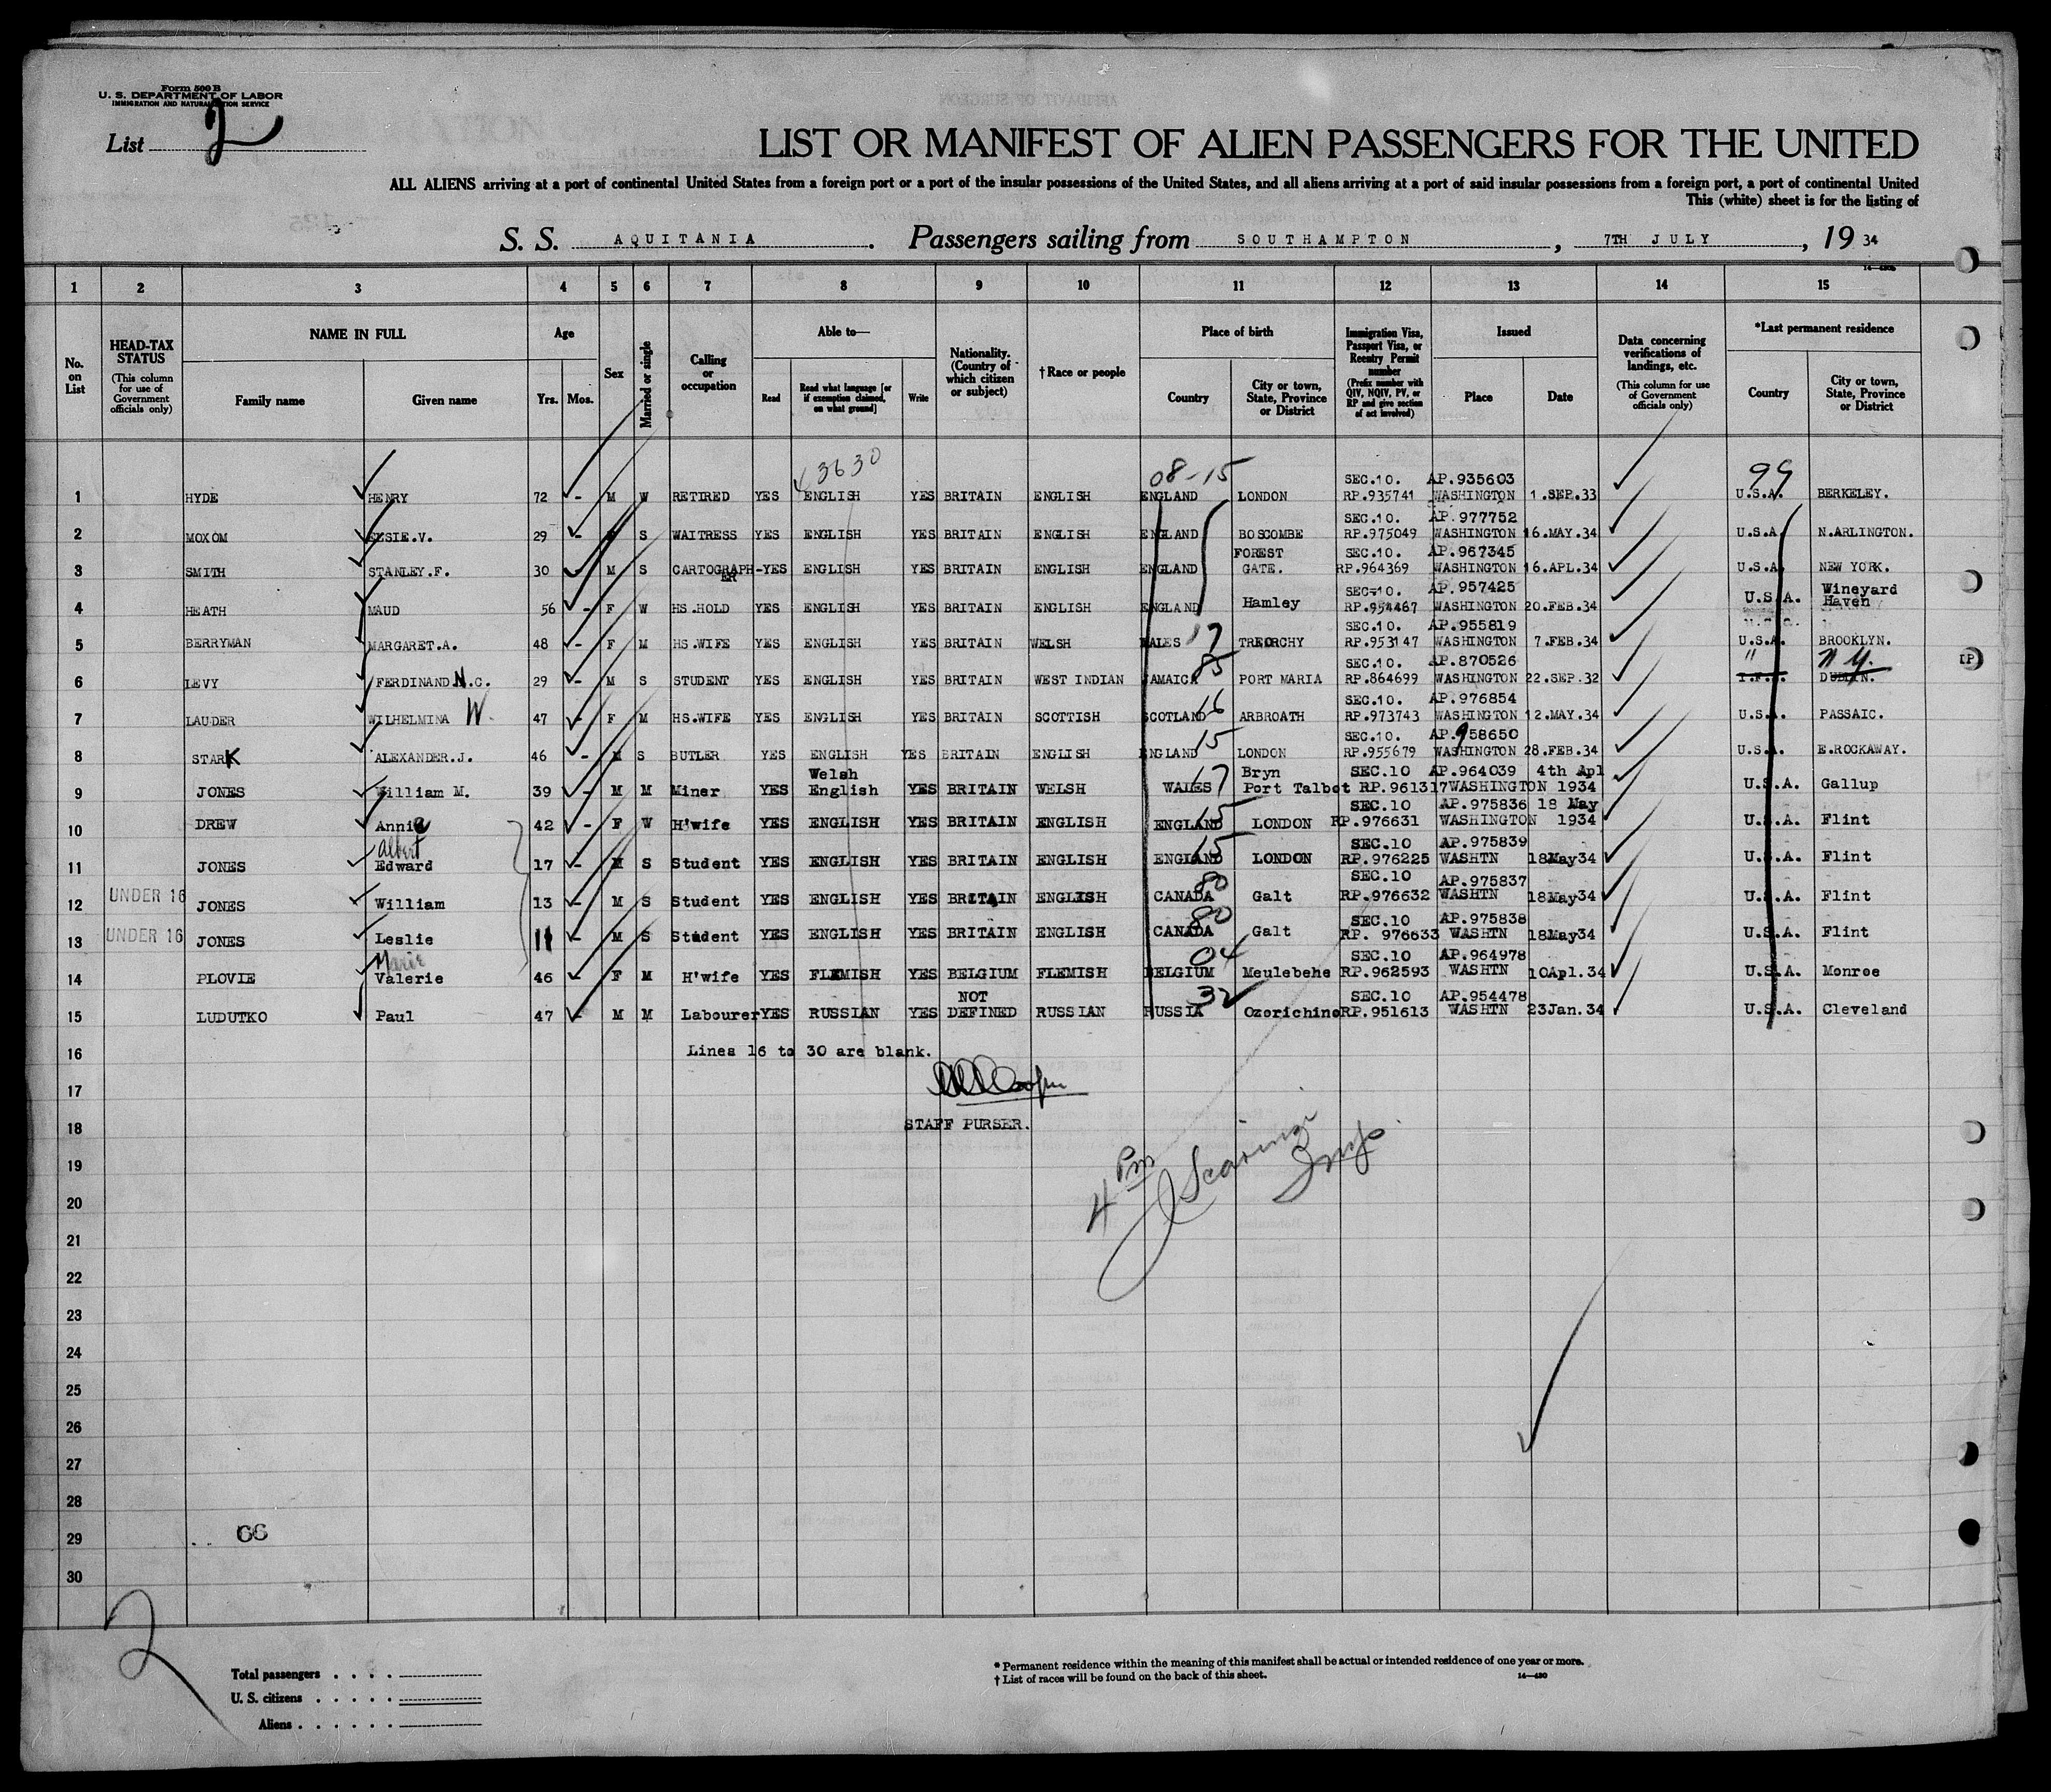 Form 500 B
U. S. DEPARTMENT OF LABOR
IMMIGRATION AND NATURALIZATION SERVICE
List 2
LIST OR MANIFEST OF ALIEN PASSENGERS FOR THE UNITED
ALL ALIENS arriving at a port of continental United States from a foreign port or a port of the insular possessions of the United States, and all aliens arriving at a port of said insular possessions from a foreign port, a port of continental United
This (white) sheet is for the listing of
S. S. AQUITANIA. Passengers sailing from SOUTHAMPTON, 7TH JULY, 19 34
1 2 3 4 5 6 7 8 9 10 11 12 13 14 15
No. on List
HEAD-TAX STATUS (This column for use of Government officials only)
NAME IN FULL Family name Given name
Age Yrs. Mos.
Sex
Married or single
Calling or occupation
Able to— Read Read what language [or if exemption claimed, on what ground] Write
Nationality. (Country of which citizen or subject)
†Race or people
Place of birth Country City or town, State, Province or District
Immigration Visa, Passport Visa, or Reentry Permit number (Prefix number with QIV, NQIV, PV, or RP and give section of act involved)
Issued Place Date
Data concerning verifications of landings, etc. (This column for use of Government officials only)
*Last permanent residence Country City or town, State, Province or District
3630 08-15 99
SEC.10. AP.935603
1 HYDE HENRY 72 - M W RETIRED YES ENGLISH YES BRITAIN ENGLISH ENGLAND LONDON RP.935741 WASHINGTON 1.SEP.33 U.S.A. BERKELEY.
SEC.10. AP.977752
2 MOXOM ELSIE.V. 29 - S WAITRESS YES ENGLISH YES BRITAIN ENGLISH ENGLAND BOSCOMBE RP.975049 WASHINGTON 16.MAY.34 U.S.A. N.ARLINGTON.
FOREST SEC.10. AP.967345
3 SMITH STANLEY.F. 30 M S CARTOGRAPH-ER YES ENGLISH YES BRITAIN ENGLISH ENGLAND GATE. RP.964369 WASHINGTON 16.APL.34 U.S.A. NEW YORK.
SEC-10. AP.957425
4 HEATH MAUD 56 - F W HS.HOLD YES ENGLISH YES BRITAIN ENGLISH ENGLAND Hamley RP.954467 WASHINGTON 20.FEB.34 U.S.A. Wineyard Haven
SEC.10. AP.955819
5 BERRYMAN MARGARET.A. 48 - F M HS.WIFE YES ENGLISH YES BRITAIN WELSH WALES 17 TREORCHY RP.953147 WASHINGTON 7.FEB.34 U.S.A. BROOKLYN.
85 SEC.10. AP.870526 " N.Y.
6 LEVY FERDINAND.N.C. 29 - M S STUDENT YES ENGLISH YES BRITAIN WEST INDIAN JAMAICA PORT MARIA RP.864699 WASHINGTON 22.SEP.32 I.F.S. DUBLIN.
SEC.10. AP.976854
7 LAUDER WILHELMINA W. 47 - F M HS.WIFE YES ENGLISH YES BRITAIN SCOTTISH SCOTLAND 16 ARBROATH RP.973743 WASHINGTON 12.MAY.34 U.S.A. PASSAIC.
SEC.10. AP.958650
8 STARK ALEXANDER.J. 46 - M S BUTLER YES ENGLISH YES BRITAIN ENGLISH ENGLAND 15 LONDON RP.955679 WASHINGTON 28.FEB.34 U.S.A. E.ROCKAWAY.
Welsh Bryn SEC.10 AP.964039 4th Apl
9 JONES William M. 39 - M M Miner YES English YES BRITAIN WELSH WALES 17 Port Talbot RP.961317 WASHINGTON 1934 U.S.A. Gallup
SEC.10 AP.975836 18 May
10 DREW Annie 42 - F W H'wife YES ENGLISH YES BRITAIN ENGLISH ENGLAND 15 LONDON RP.976631 WASHINGTON 1934 U.S.A. Flint
Albert SEC.10 AP.975839
11 JONES Edward 17 - M S Student YES ENGLISH YES BRITAIN ENGLISH ENGLAND 15 LONDON RP.976225 WASHTN 18May34 U.S.A. Flint
80 SEC.10 AP.975837
12 UNDER 16 JONES William 13 - M S Student YES ENGLISH YES BRITAIN ENGLISH CANADA Galt RP.976632 WASHTN 18May34 U.S.A. Flint
80 SEC.10 AP.975838
13 UNDER 16 JONES Leslie 11 - M S Student YES ENGLISH YES BRITAIN ENGLISH CANADA Galt RP. 976633 WASHTN 18May34 U.S.A. Flint
Marie 04 SEC.10 AP.964978
14 PLOVIE Valerie 46 - F M H'wife YES FLEMISH YES BELGIUM FLEMISH BELGIUM Meulebehe RP.962593 WASHTN 10Apl.34 U.S.A. Monroe
NOT 32 SEC.10 AP.954478
15 LUDUTKO Paul 47 - M M Labourer YES RUSSIAN YES DEFINED RUSSIAN RUSSIA Ozorichino RP.951613 WASHTN 23Jan.34 U.S.A. Cleveland
16 Lines 16 to 30 are blank.
17
18 STAFF PURSER.
19
4 Pm
20
21
22
23
24
25
26
27
28
29 66
30
2
Total passengers
U. S. citizens
Aliens
* Permanent residence within the meaning of this manifest shall be actual or intended residence of one year or more.
† List of races will be found on the back of this sheet.
14—430